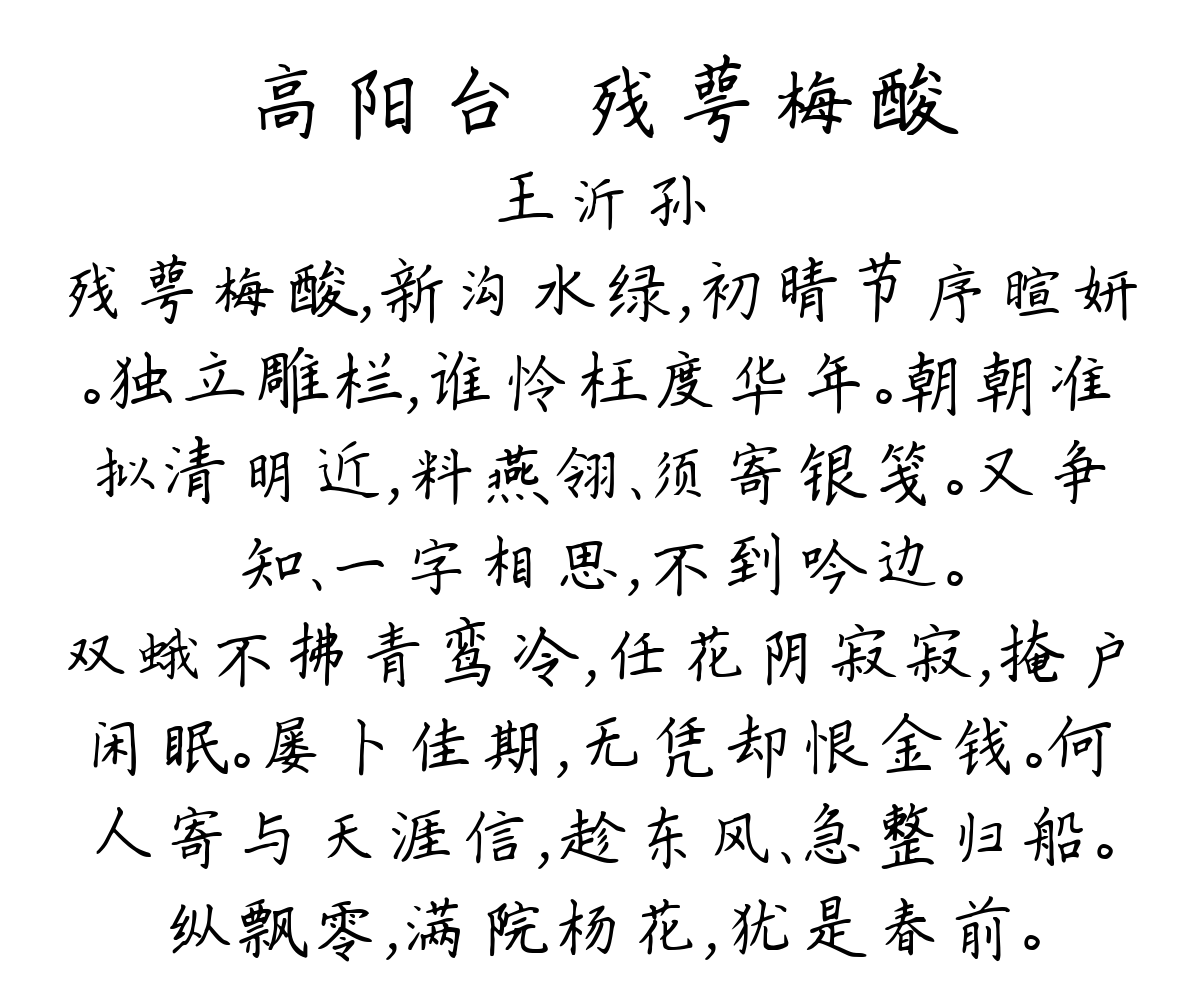 高阳台 残萼梅酸
王沂孙
残萼梅酸,新沟水绿,初晴节序暄妍
。独立雕栏,谁怜枉度华年。朝朝准
拟清明近,料燕翎、须寄银笺。又争
知、一字相思,不到吟边。
双蛾不拂青鸾冷,任花阴寂寂,掩户
闲眠。屡卜佳期,无凭却恨金钱。何
人寄与天涯信,趁东风、急整归船。
纵飘零,满院杨花,犹是春前。